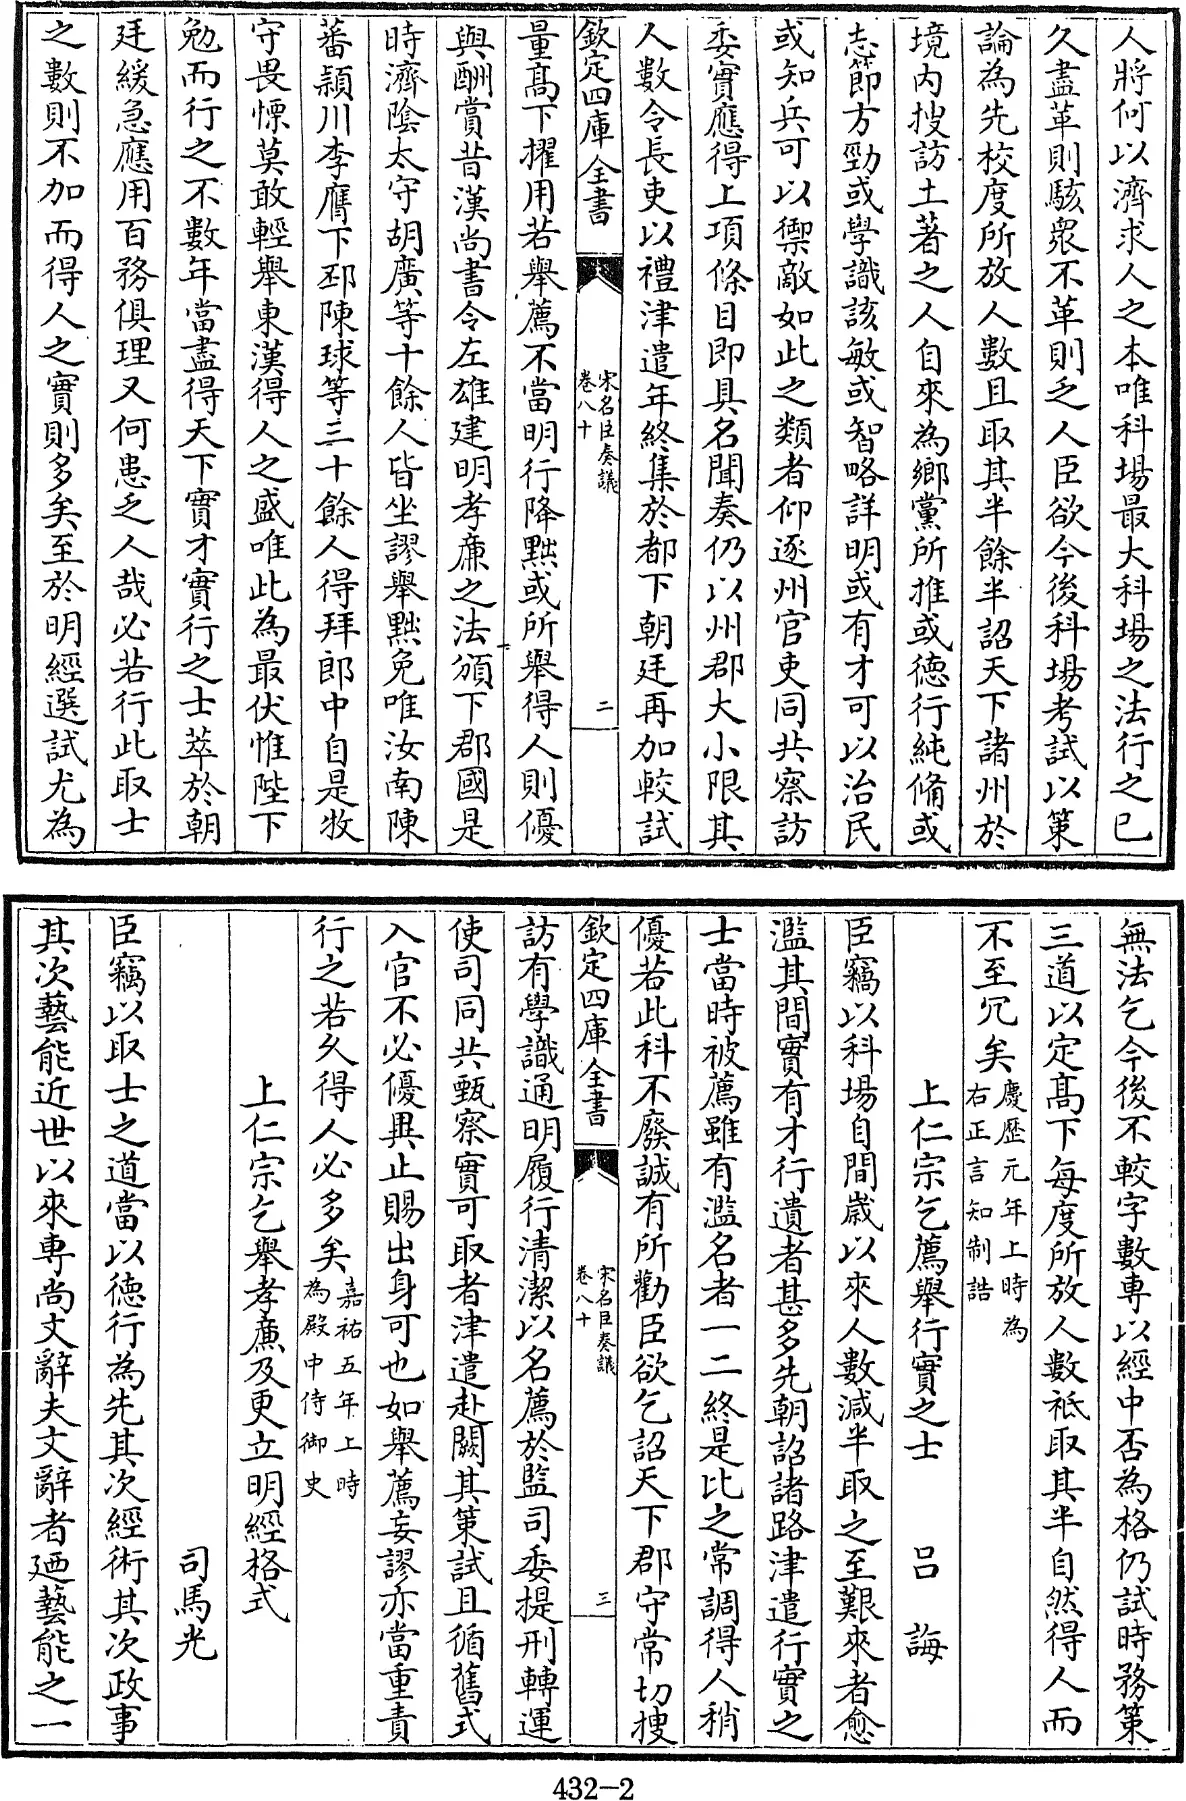 人將何以濟求人之本唯科場最大科場之法行之已
久盡革則駭衆不革則乏人臣欲今後科場考試以策
論為先校度所放人數且取其半餘半詔天下諸州於
境内搜訪土著之人自來為鄉黨所推或徳行純脩或
志節方勁或學識該敏或智略詳明或有才可以治民
或知兵可以禦敵如此之類者仰逐州官吏同共察訪
委實應得上項條目即具名聞奏仍以州郡大小限其
人數令長吏以禮津遣年終集於都下朝廷再加較試
欽定四庫全書
宋名臣奏議
卷八十
二
量髙下擢用若舉薦不當明行降黜或所舉得人則優
與酬賞昔漢尚書令左雄建明孝亷之法頒下郡國是
時濟陰太守胡廣等十餘人皆坐謬舉黜免唯汝南陳
蕃潁川李膺下邳陳球等三十餘人得拜郎中自是牧
守畏慄莫敢輕舉東漢得人之盛唯此為最伏惟陛下
勉而行之不數年當盡得天下實才實行之士萃於朝
廷緩急應用百務俱理又何患乏人哉必若行此取士
之數則不加而得人之實則多矣至於明經選試尤為
無法乞今後不較字數専以經中否為格仍試時務策
三道以定髙下每度所放人數祇取其半自然得人而
不至冗矣
慶歴元年上時為
右正言知制誥
上仁宗乞薦舉行實之士 呂誨
臣竊以科場自間歳以來人數減半取之至艱來者愈
濫其間實有才行遺者甚多先朝詔諸路津遣行實之
士當時被薦雖有濫名者一二終是比之常調得人稍
優若此科不廢誠有所勸臣欲乞詔天下郡守常切搜
欽定四庫全書
宋名臣奏議
卷八十
三
訪有學識通明履行清潔以名薦於監司委提刑轉運
使司同共甄察實可取者津遣赴闕其策試且循舊式
入官不必優異止賜出身可也如舉薦妄謬亦當重責
行之若久得人必多矣
嘉祐五年上時
為殿中侍御史
上仁宗乞舉孝亷及更立明經格式
司馬光
臣竊以取士之道當以徳行為先其次經術其次政事
其次藝能近世以來専尚文辭夫文辭者廼藝能之一
432-2